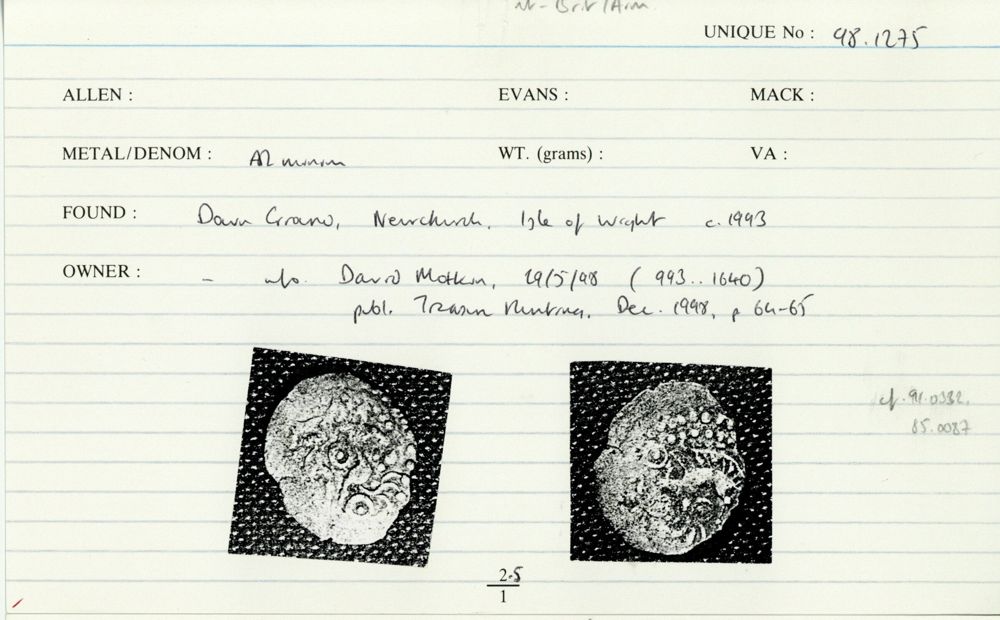 UNIQUE No : 98.1275
ALLEN : EVANS : MACK :
METAL/DENOM : AR minim WT. (grams) : VA :
FOUND : Down Grange, Newchurch, Isle of Wight c. 1993
OWNER : - info. David Motkin, 29/5/98 (993..1640)
publ. Treasure Hunting, Dec. 1998, p 64-65
cf. 94.0332,
85.0087
2.5
1